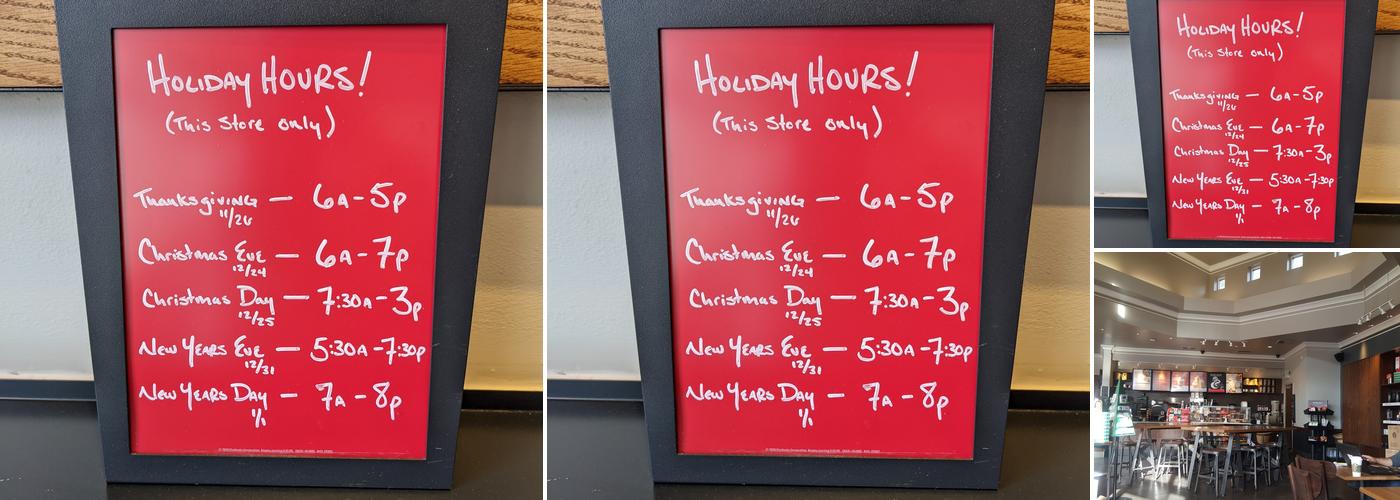 HOLIDAY HOURS!
(This Store only)
Thanksgiving — 6A-5p
11/26
Christmas Eve — 6A-7p
12/24
Christmas Day — 7:30A-3p
12/25
New Years Eve — 5:30A-7:30p
12/31
New Years Day — 7A-8p
1/1
HOLIDAY HOURS!
(This Store only)
Thanksgiving — 6A-5p
11/26
Christmas Eve — 6A-7p
12/24
Christmas Day — 7:30A-3p
12/25
New Years Eve — 5:30A-7:30p
12/31
New Years Day — 7A-8p
1/1
HOLIDAY HOURS!
(This Store only)
Thanksgiving — 6A-5p
11/26
Christmas Eve — 6A-7p
12/24
Christmas Day — 7:30A-3p
12/25
New Years Eve — 5:30A-7:30p
12/31
New Years Day — 7A-8p
1/1